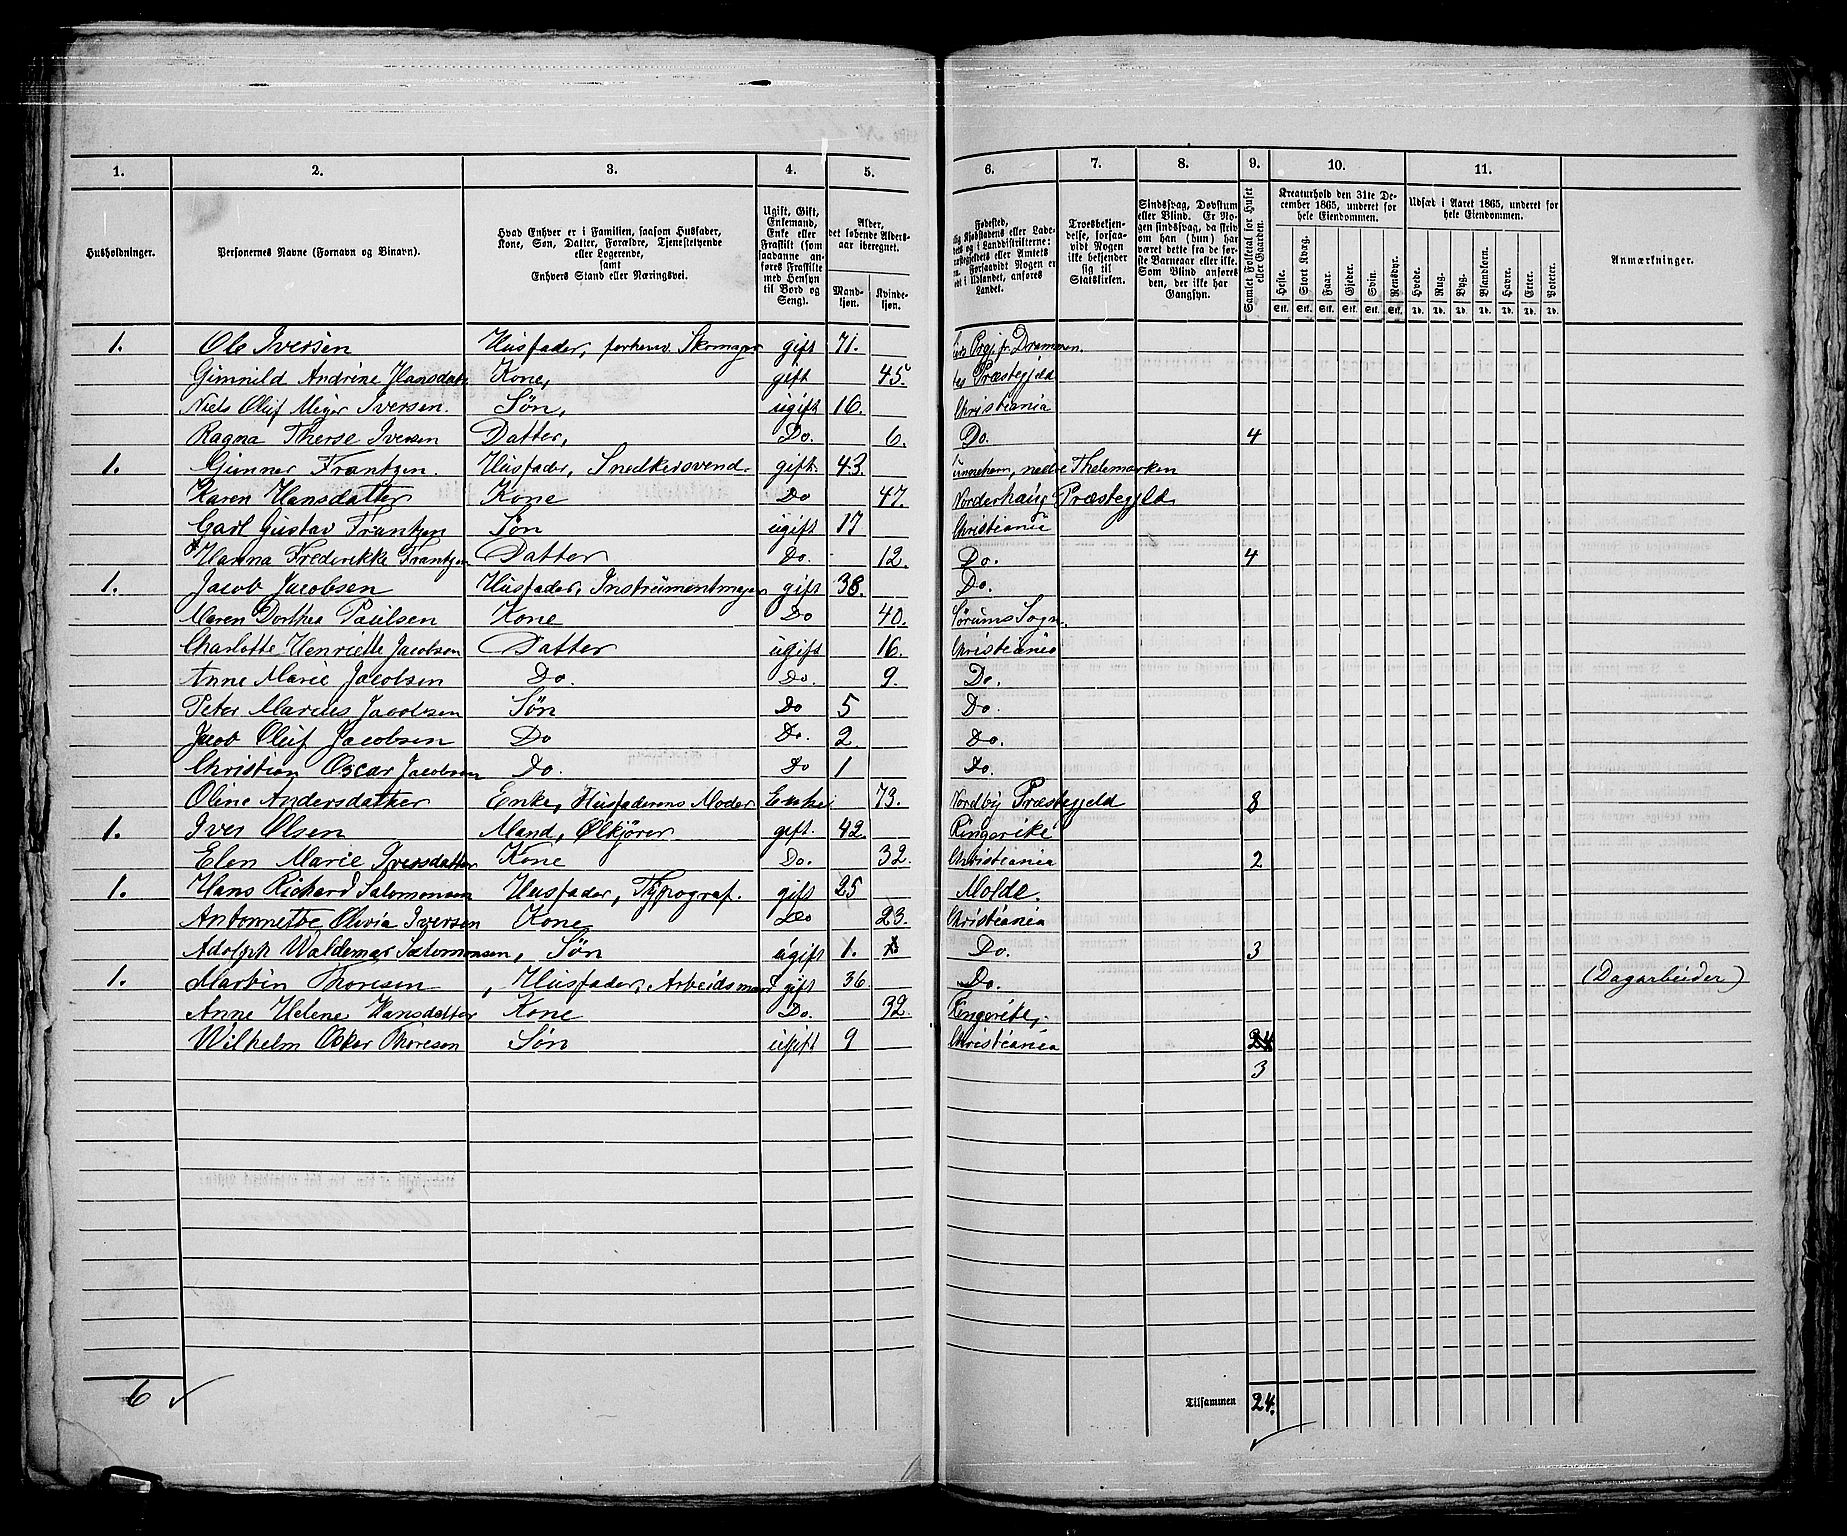 1. 2. 3. 4. 5. 6. 7. 8. 9. 10. 11.
Husholdninger.
Personernes Navne (Fornavn og Binavn).
Hvad Enhver er i Familien, saasom Husfader, Kone, Søn, Datter, Forældre, Tjenestetyende eller Logerende, samt Enhvers Stand eller Næringsvei.
Ugift, Gift, Enkemand, Enke eller Fraskilt (som saadanne anføres Fraskilte med Hensyn til Bord og Seng).
Alder, det løbende Aldersaar iberegnet.
Mandkjøn. Kvindekjøn.
Fødested,
Troesbekjendelse, forsaavidt Nogen ikke bekjender sig til Statskirken.
Sindssvag, Døvstum eller Blind. Er Nogen sindssvag, da skiven om han (hun) har været dette fra de første Barneaar eller ikke. Som Blind anføres den, der ikke har Gangsyn.
Samlet Folketal for Huset eller Gaarden.
Kreaturhold den 31te December 1865, underet for hele Eiendommen.
Heste. Stort Kvæg. Faar. Gjeder. Svin. Rensdyr.
Stk. Stk. Stk. Stk. Stk. Stk.
Udsæd i Aaret 1865, underet for hele Eiendommen.
Hvede. Rug. Byg. Blandkorn. Havre. Erter. Poteter.
Td. Td. Td. Td. Td. Td. Td.
Anmærkninger.
1. Ole Iversen Husfader, forhenv. Skomager gift 71. Prgj. fr. Drammen.
Gunnild Andrine Hansdatr Kone, gift 45. Præstegjeld
Niels Oluf Meyer Iversen. Søn, ugift 16. Christiania
Ragna Therse Iversen Datter, Do. 6. Do. 4
1. Gunner Frantzen. Husfader, Snedkersvend gift 43. nedre Thelemarken
Karen Hansdatter Kone Do 47. Norderhaug Præstegjeld
Carl Gustav Frantzen Søn ugift 17 Christiania
Hanna Frederikke Frantzen Datter Do. 12. Do. 4
1. Jacob Jacobsen Husfader, Instrumentmager gift 38. Do.
Maren Dorthea Paulsen Kone Do 40. Sørums Sogn.
Charlotte Henriette Jacobsen Datter ugift 16. Christiania
Anne Marie Jacobsen Do. Do. 9. Do.
Peter Marius Jacobsen Søn Do 5 Do.
Jacob Oluf Jacobsen Do Do. 2. Do.
Christian Oscar Jacobsen Do. Do 1 Do.
Oline Andersdatter Enke, Husfaderens Moder Enke 73. Nordby Præstegjeld 8
1. Iver Olsen Mand, Ølkjører gift. 42. Ringerike
Elen Marie Iversdatter Kone Do. 32. Christiania 2
1. Hans Richard Salomonsen Husfader, Typograf. gift 25 Molde.
Antonnette Olivia Iversen Kone Do 23. Christiania
Adolph Waldemar Salomonsen, Søn ugift 1. Do. 3
1. Martin Thoresen, Husfader, Arbeidsmand gift 36. Do. (Dagarbeider)
Anne Helene Hansdatter Kone Do. 32. Ringerike,
Wilhelm Oskar Thoresen Søn ugift 9 Christiania 24
3
6 Tilsammen 24.